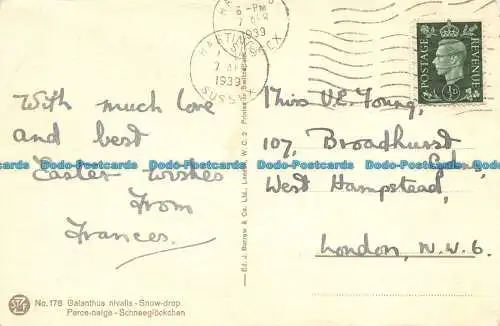 HASTINGS
6-PM
7 APR
1939
SUSSEX
HASTINGS
7 AP
1939
SUSSEX
POSTAGE
REVENUE
½D
With much love
and best
Easter wishes
From
Frances.
Miss V.E. Young,
107, Broadhurst
Gdns,
West Hampstead,
London, N.W.6.
Ed. J. Burrow & Co. Ltd., London, W. C. 2 Printed in Switzerland
No. 178 Galanthus nivalis - Snow-drop
Perce-neige - Schneeglöckchen
ldo-Postcards ldo-Postcards ldo-Postcards ldo-Postcards ldo-Postcards